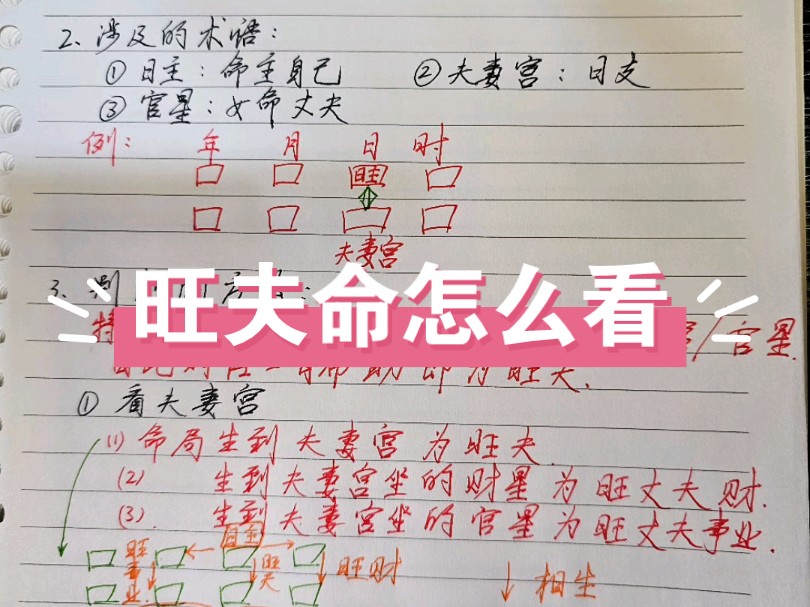 2.涉及的术语:
①日主:命主自己 ②夫妻宫:日支
③官星:女命丈夫
例: 年 月 日 时
旺
夫妻宫
3.
旺夫命怎么看
特 /官星
即为旺夫.
①看夫妻宫
(1)命局生到夫妻宫为旺夫.
(2) 生到夫妻宫坐的财星为旺丈夫财.
(3). 生到夫妻宫坐的官星为旺丈夫事业.
日主
旺事业 旺夫 旺财 相生